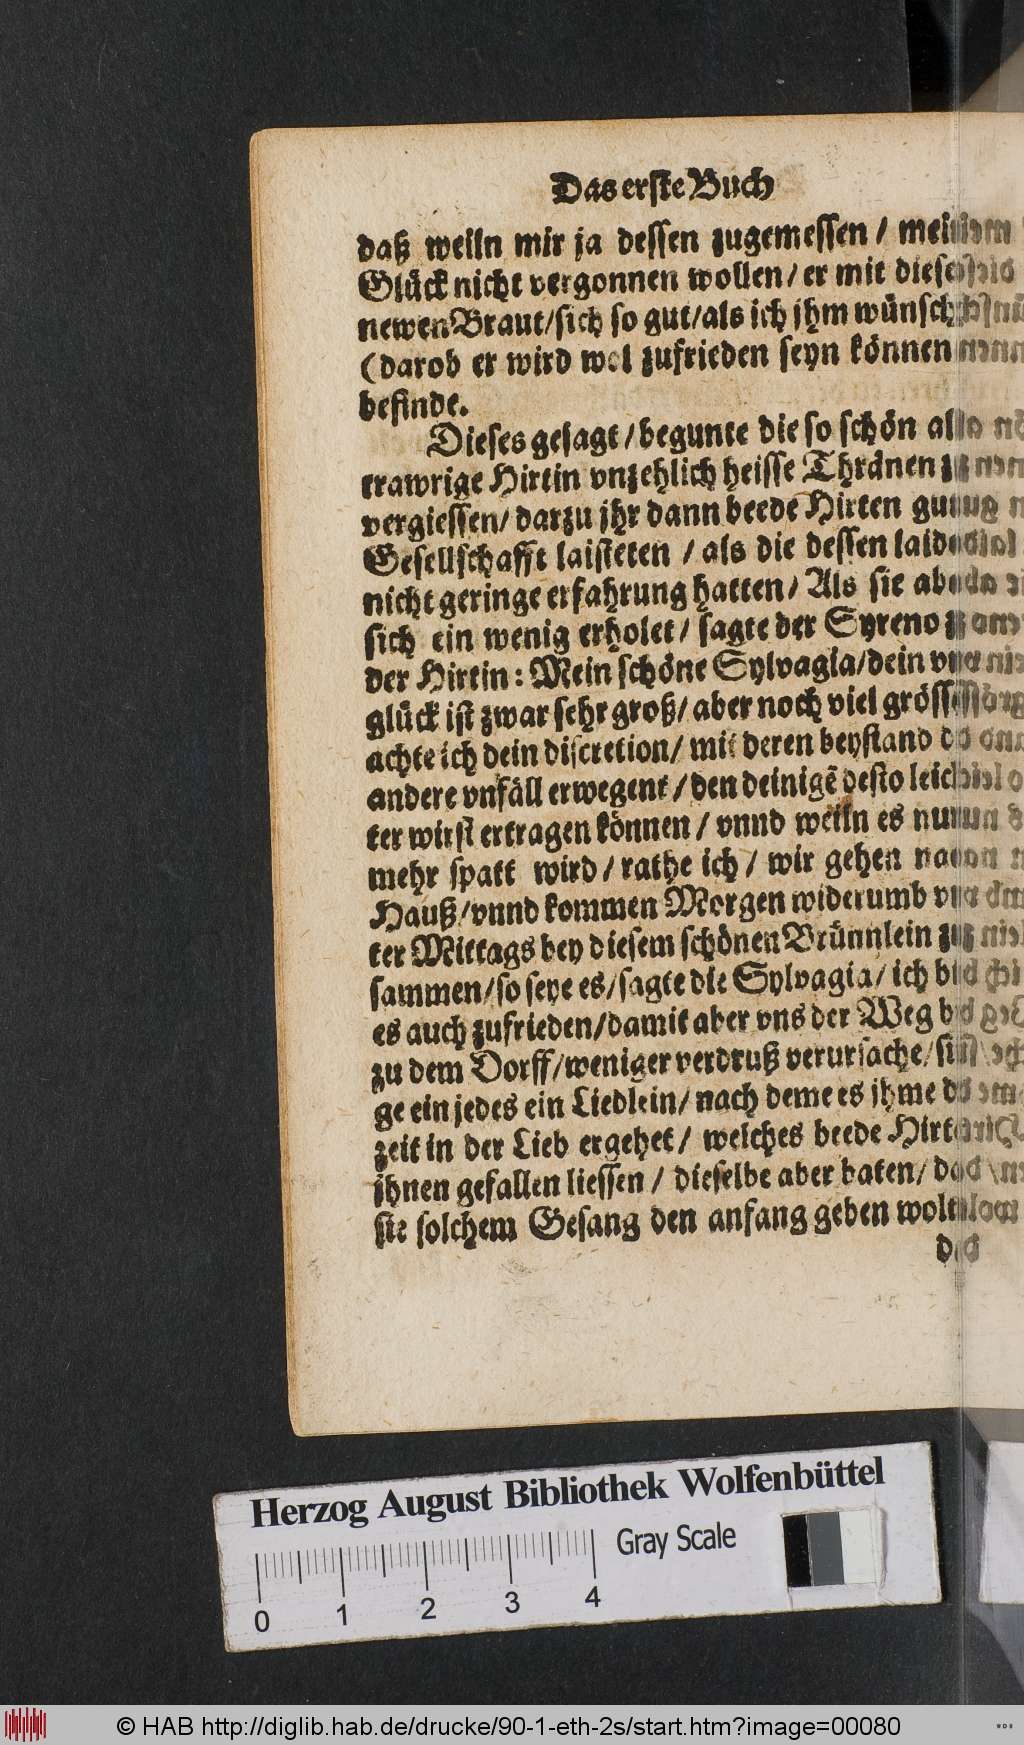 Das erste Buch
daß weiln mir ja dessen zugemessen / mein
Glück nicht vergonnen wollen / er mit dieser
newen Braut / sich so gut / als ich jhm wünsche /
(darob er wird wol zufrieden seyn können)
befinde.
Dieses gesagt / begunte die so schön als
trawrige Hirtin vnzehlich heisse Thränen zu
vergiessen / darzu jhr dann beede Hirten gute
Gesellschafft laisteten / als die dessen laids
nicht geringe erfahrung hatten / Als sie aber
sich ein wenig erholet / sagte der Syreno zu
der Hirtin: Mein schöne Sylvagia / dein vn-
glück ist zwar sehr groß / aber noch viel grösser
achte ich dein discretion / mit deren beystand du
andere vnfäll erwegent / den deinigẽ desto leich-
ter wirst ertragen können / vnnd weiln es nun-
mehr spatt wird / rathe ich / wir gehen nach
Hauß / vnnd kommen Morgen widerumb vn-
ter Mittags bey diesem schönen Brünnlein zu-
sammen / so seye es / sagte die Sylvagia / ich bin
es auch zufrieden / damit aber vns der Weg biß
zu dem Dorff / weniger verdruß verursache / sin-
ge ein jedes ein Liedlein / nach deme es jhme der-
zeit in der Lieb ergehet / welches beede Hirten
jhnen gefallen liessen / dieselbe aber baten / daß
sie solchem Gesang den anfang geben wolte /
Herzog August Bibliothek Wolfenbüttel
Gray Scale
0 1 2 3 4
© HAB http://diglib.hab.de/drucke/90-1-eth-2s/start.htm?image=00080